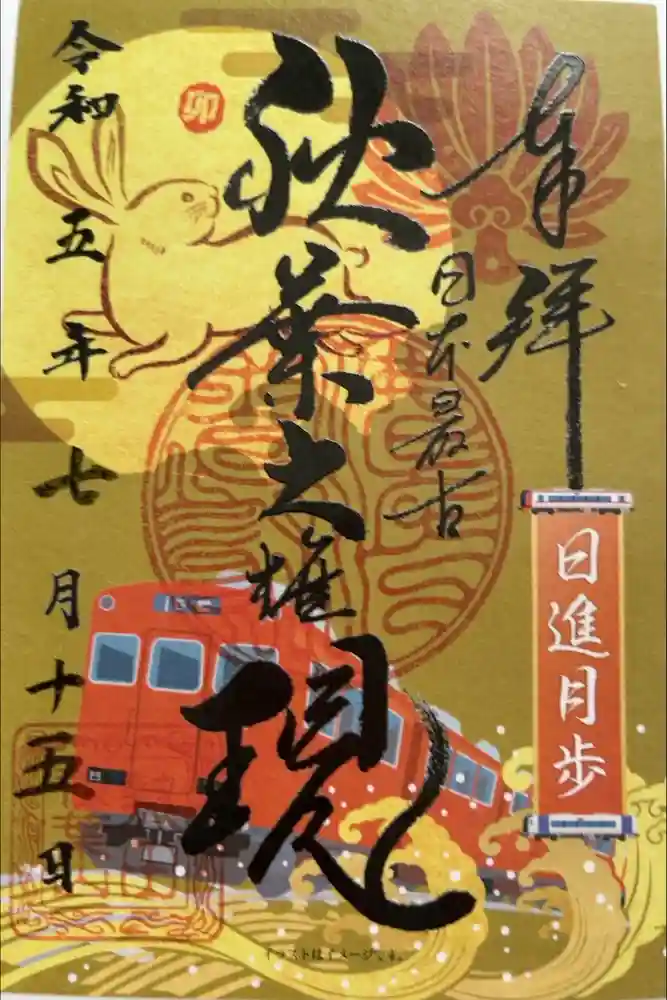 奉拝
日本最古
秋葉大権現
令和五年七月十五日
卯
日進月歩
イラストはイメージです。